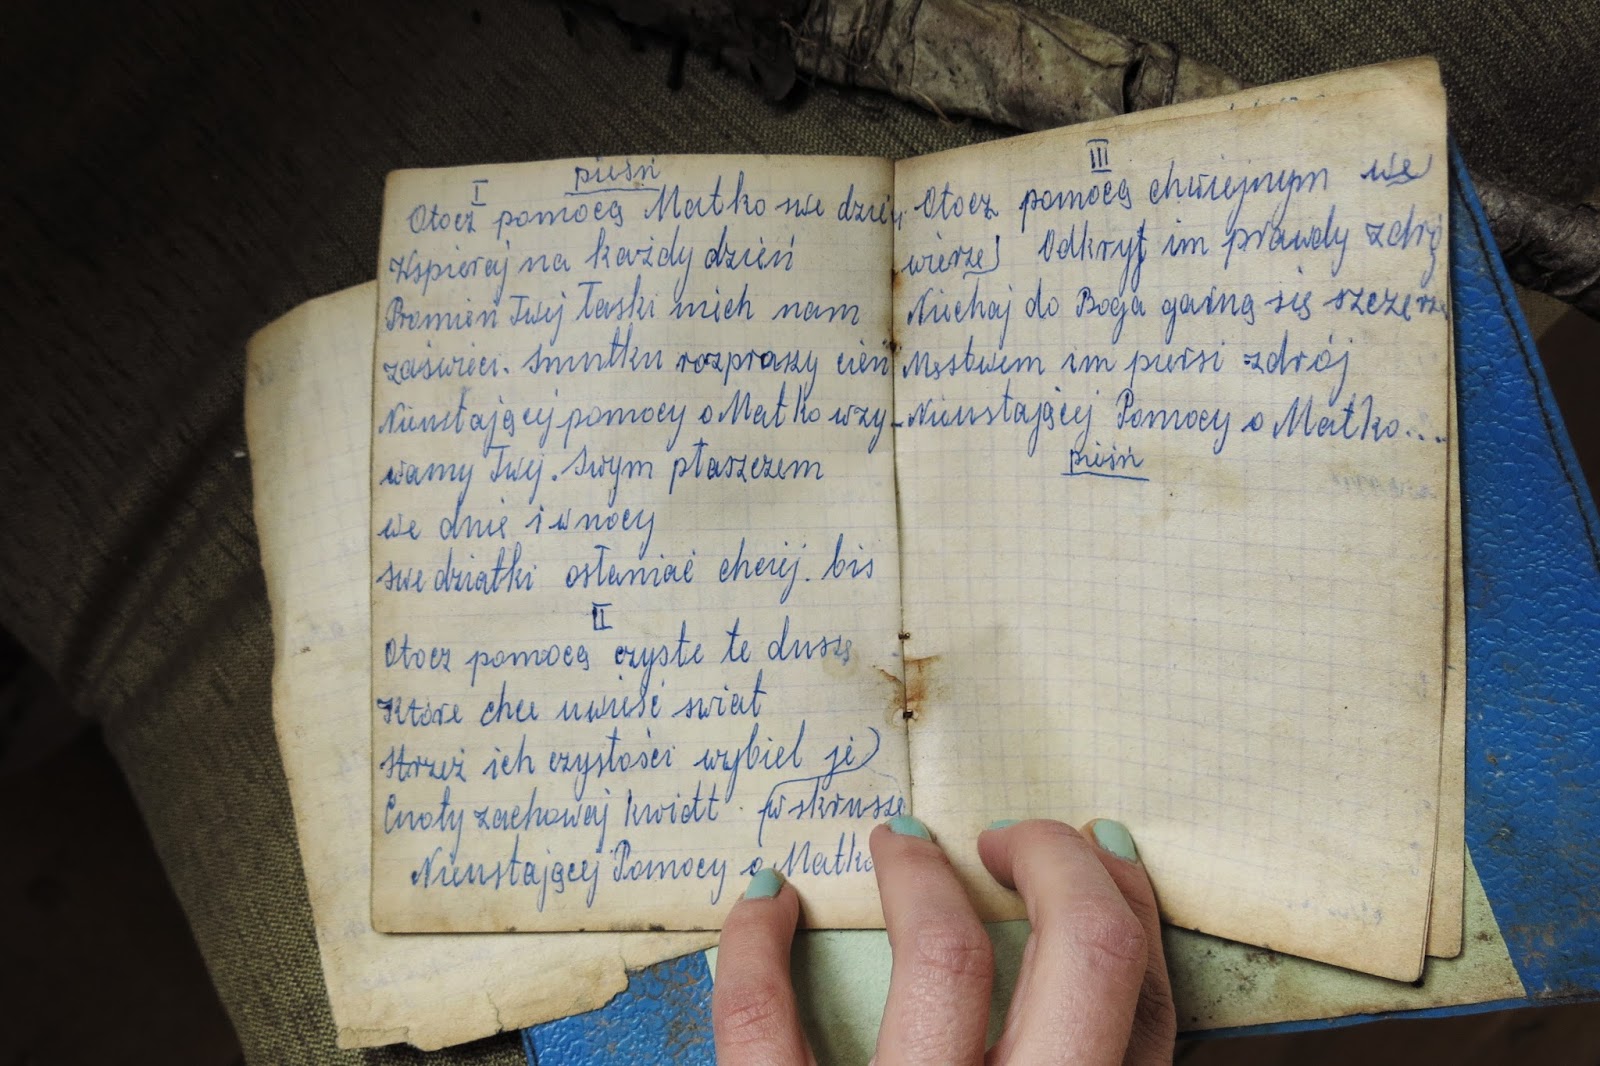 pieśń
I
Otocz pomocą Matko swe dzieci
Wspieraj na każdy dzień
Promień Twej łaski niech nam
zaświeci. Smutku rozproszy cień
Nieustającej pomocy o Matko wzy-
wamy Twej. Swym płaszczem
we dnie i w nocy
swe dziatki osłaniać chciej. bis
II
Otocz pomocą czyste te duszę
Które chce uwieść swiat
Strzeż ich czystości wybiel je)
Cnoty zachowaj kwiat. (w skrusze
Nieustającej Pomocy o Matko
III
Otocz pomocą chwiejnym we
wierze) Odkryj im prawdy zdrój
Niechaj do Boga garną się szczerze
Męstwem im piersi zdrój
Nieustającej Pomocy o Matko....
pieśń